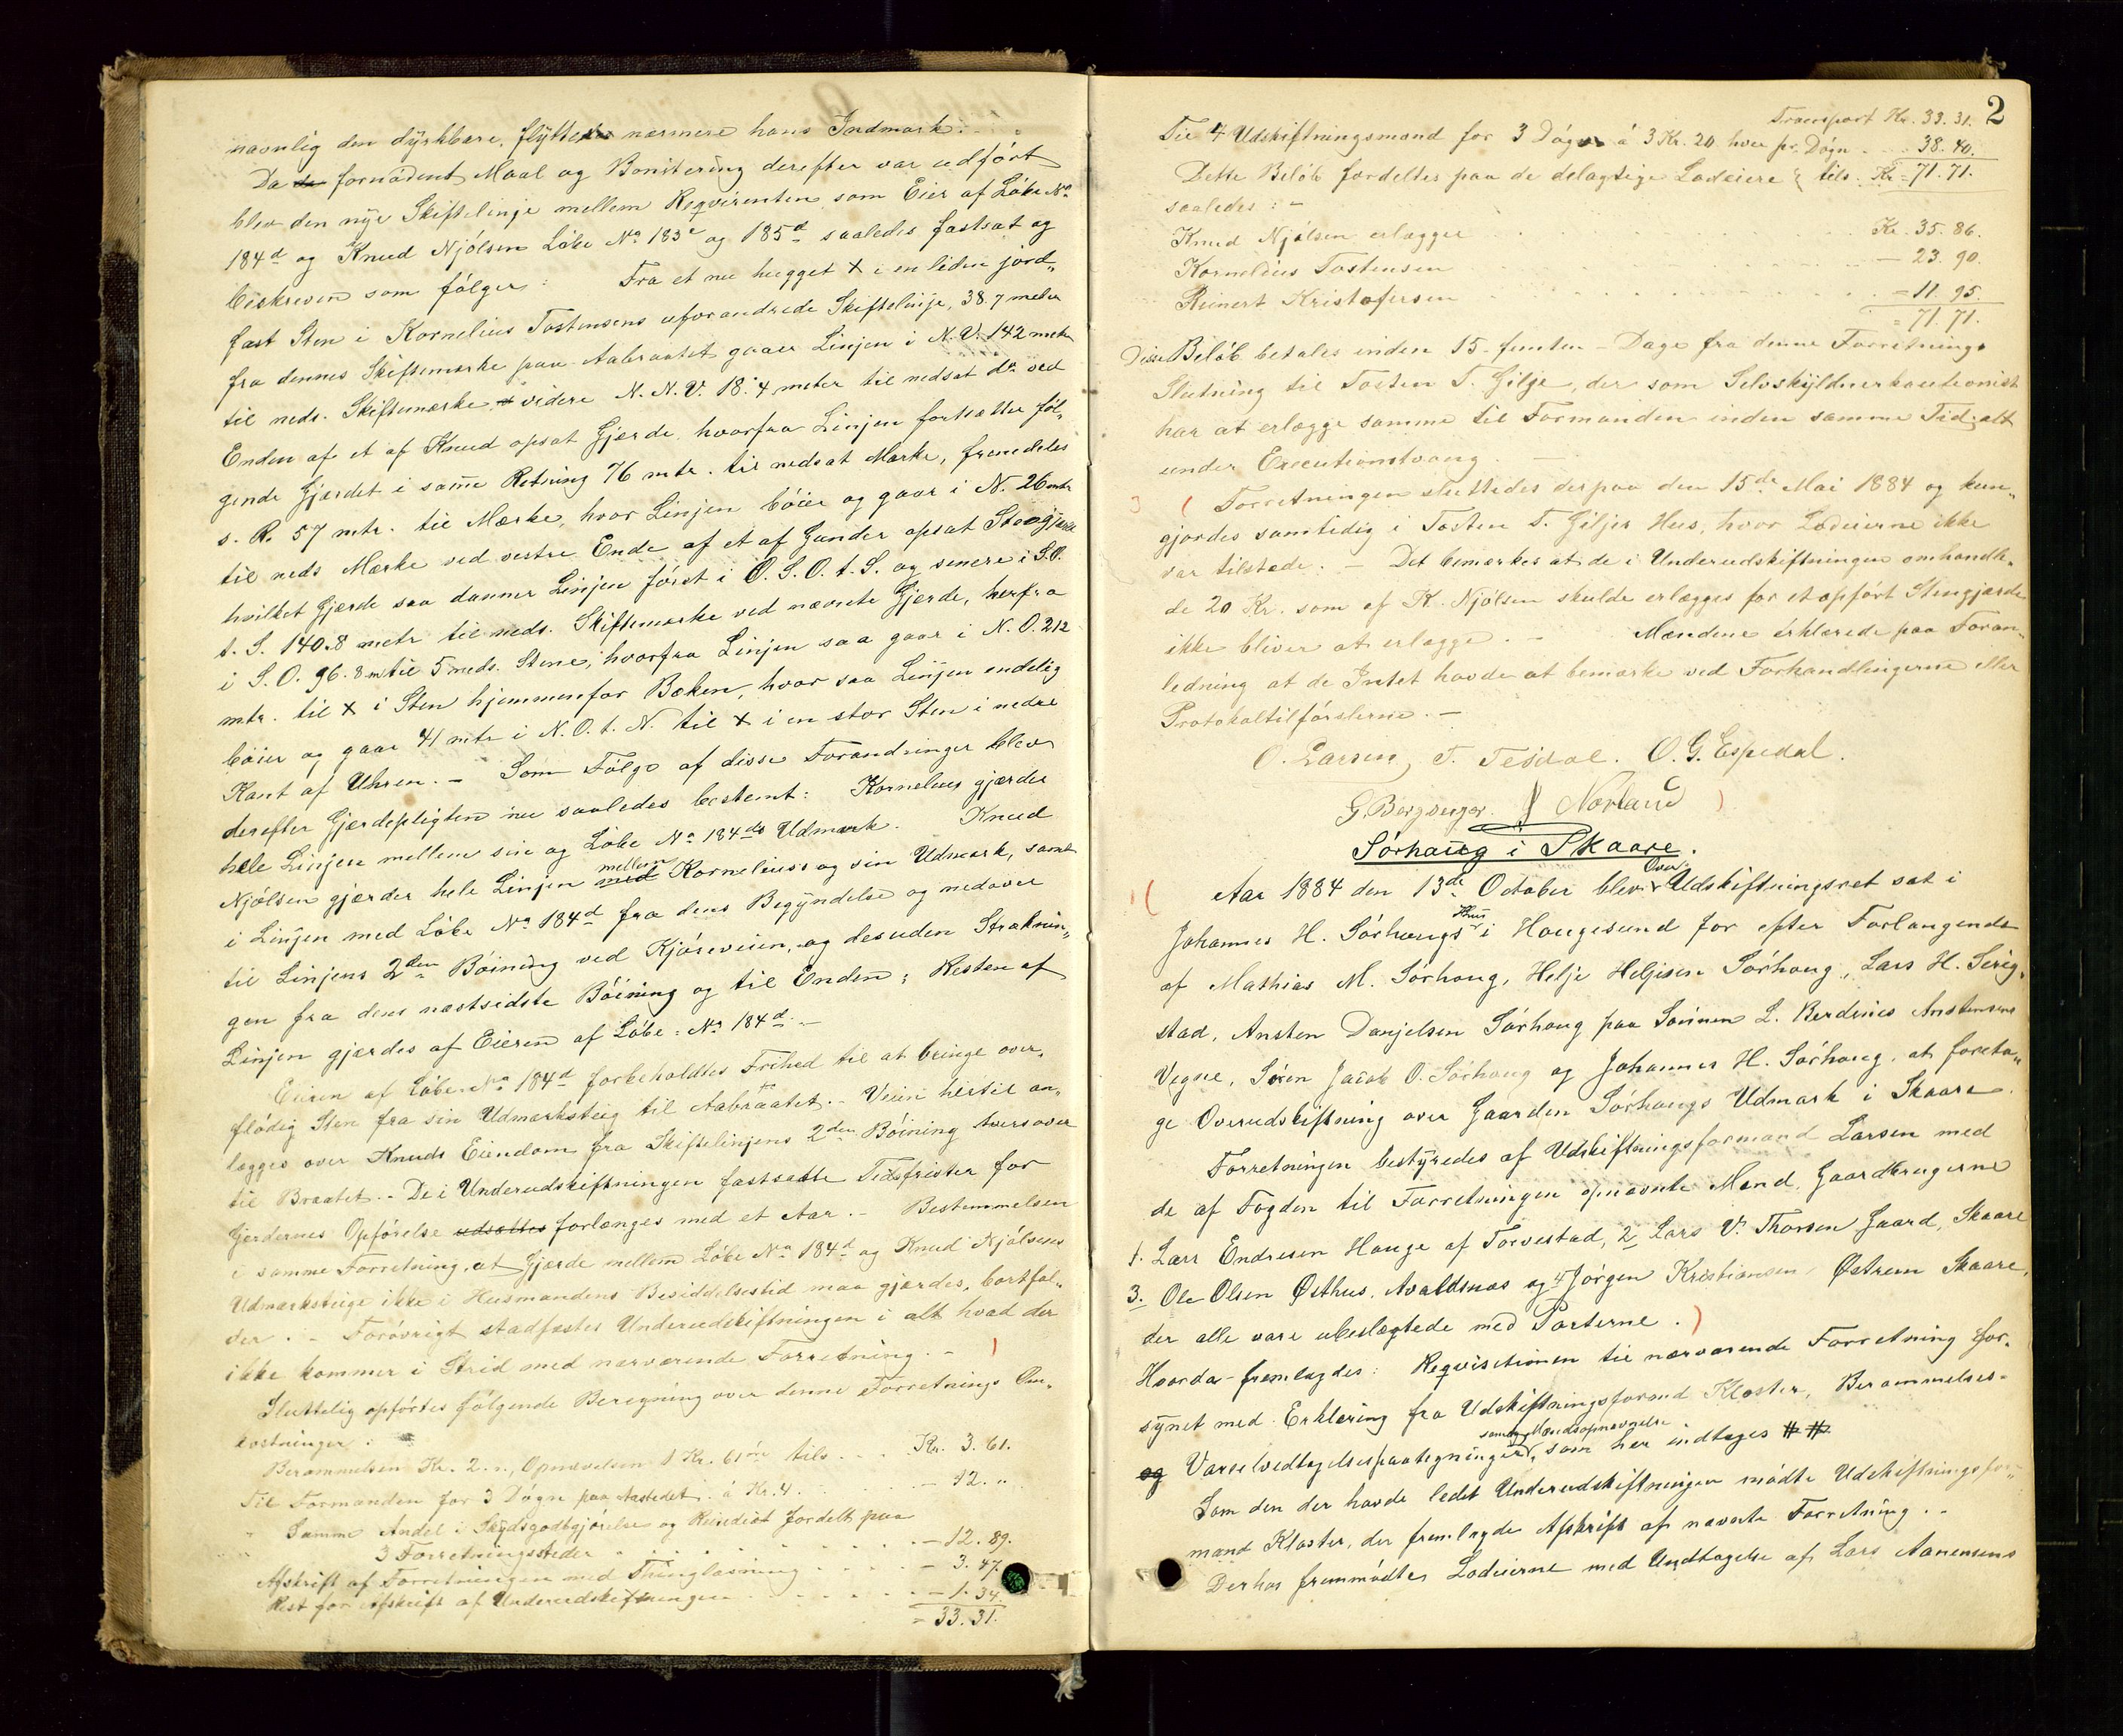 navnlig den dyrkbare, flyttedes nærmere hans Indmark. -
Da de fornødent Maal og Bonitering derefter var udført
blev den nye Skiftelinje mellem Reqvirenten som Eier af Løbe No
184d og Knud Njølsen Løbe No 183c og 185d saaledes fastsat og
beskreven som følger: Fra et nu hugget X i en liden jord-
fast Sten i Kornelius Tostensens uforandrede Skiftelinje, 38.7 meter
fra dennes Skiftemærke paa Aabraatet gaaer Linjen i N.V. 142 metr
til neds. Skiftemærke, videre N.N.V. 18.4 meter til nedsat do ved
Enden af et af Knud opsat Gjærde, hvorfra Linjen fortsætter føl-
gende Gjærdet i samme Retning 76 mtr. til nedsat Mærke, fremdeles
s. R. 57 mtr. til Mærke, hvor Linjen bøier og gaar i N. 26 mtr
til neds Mærke ved vestre Ende af et af Gunder opsat Stengjærde
hvilket Gjærde saa danner Linjen først i O.S.O. t. S. og senere i S.O.
t. S. 140.8 metr til neds. Skiftemærke ved nævnte Gjærde, herfra
i S.O. 96.8 m til 5 neds. Stene, hvorfra Linjen saa gaar i N.O. 212
mtr. til X i Sten hjemmenfor Bækken, hvor saa Linjen endelig
bøier og gaar 41 mtr i N.O. t. N. til X i en stor Sten i nedre
Kant af Uhren. - Som Følge af disse Forandringer blev
derefter Gjærdepligten nu saaledes bestemt: Kornelius gjærder
hele Linjen mellem sin og Løbe No 184ds Udmark. Knud
Njølsen gjærder hele Linjen med mellem Kornelius's og sin Udmark, samt
i Linjen med Løbe No 184d fra dens Begyndelse og nedover
til Linjens 2den Bøining ved Kjøreveien, og desuden Stræknin-
gen fra dens næstsidste Bøining og til Enden; Resten af
Linjen gjærdes af Eieren af Løbe-No 184d. -
Eieren af Løbe-No 184d forbeholdtes Frihed til at bringe over-
flødig Sten fra sin Udmarksteig til Aabraatet. - Veien hertil an-
lægges over Knuds Eiendom fra Skiftelinjens 2den Bøining tversover
til Braatet. - De i Underudskiftningen fastsatte Tidsfrister for
Gjerdernes Opførelse udsættes forlænges med et Aar. - Bestemmelsen
i samme Forretning, at Gjærde mellem Løbe No 184d og Knud Njølsens
Udmarksteige ikke i Husmandens Besiddelsestid maa gjærdes, bortfal-
der. - Forøvrigt stadfæstes Underudskiftningen i alt hvad der
ikke kommer i Strid med nærværende Forretning. -
Sluttelig opførtes følgende Beregning over denne Forretnings Om-
kostninger:
Berammelsen Kr. 2.", Opnævelsen 1 Kr. 61 øre tils. . . Kr. 3.61.
Til Formanden for 3 Døgn paa Aastedet á Kr. 4. . . . - 12. "
" Samme Andel i Skydsgodtgjørelse og Reisediæt fordelt paa
3 Forretningssteder . . . - 12.89.
Afskrift af Forretningen med Thinglæsning . . . - 3.47.
Rest for Afskrift af Underudskiftningen . . . - 1.34
= 33.31.
2
Transport Kr. 33.31.
Til 4 Udskiftningsmænd for 3 Døgn á 3 Kr. 20 hver pr. Døgn . . - 38.40.
Dette Beløb fordeltes paa de delagtige Lodeiere tils. Kr = 71.71.
saaledes: -
Knud Njølsen erlægger . . . Kr. 35.86.
Kornelius Tostensen . . . - 23.90.
Reinert Kristofersen . . . - 11.95.
= 71.71.
Disse Beløb betales inden 15 - femten - Dage fra denne Forretnings
Slutning til Tosten T. Gilje, der som Selvskyldnerkautionist
har at erlægge samme til Formanden inden samme Tid, alt
under Executionstvang. -
3 ( Forretningen sluttedes derpaa den 15de Mai 1884 og kun-
gjordes samtidig i Tosten T. Giljes Hus, hvor Lodeierne ikke
var tilstede. - Det bemærkes at de i Underudskiftningen omhandle-
de 20 Kr. som af K. Njølsen skulde erlægges for et opført Stengjærde
ikke bliver at erlægge. - Mændene erklærede paa Foran-
ledning at de Intet havde at bemærke ved Forhandlingerne eller
Protokoltilførslerne. -
O. Larsen, T. Tesdal. O. G. Espedal.
G. Bergsager. Norland )
Sørhaug i Skaare.
( Aar 1884 den 13de October blev Over Udskiftningsret sat i
Johannes H. Sørhaugs Hus i Haugesund for efter Forlangende
af Mathias M. Sørhaug, Helje Heljesen Sørhaug, Lars H. Sevig-
stad, Ansten Danjelsen Sørhaug paa Sønnen L. Berdines Anstensens
Vegne, Søren Jacob O. Sørhaug og Johannes H. Sørhaug, at foreta-
ge Overudskiftning over Gaarden Sørhaugs Udmark i Skaare.
Forretningen bestyredes af Udskiftningsformand Larsen med
de af Fogden til Forretningen opnævnte Mænd, Gaardbrugerne
1. Lars Endresen Hauge af Torvestad, 2 Lars V. Thorsen Gaard, Skaare
3. Ole Olsen Østhus, Avaldsnæs og 4 Jørgen Kristiansen Østrem Skaare,
der alle vare ubeslægtede med Parterne. )
Hvorda fremlagdes: Reqvisitionen til nærværende Forretning for-
synet med Erklæring fra Udskiftningsformd Kloster, Berammelses-
og Varselvedtagelsespaategninger, samt Mændsopnævnelse som her indtages ##
Som den der havde ledet Underudskiftningen mødte Udskiftningsfor-
mand Kloster, der fremlagde Afskrift af nævnte Forretning. -
Derhos fremmødte Lodeierne med Undtagelse af Lars Aanensens